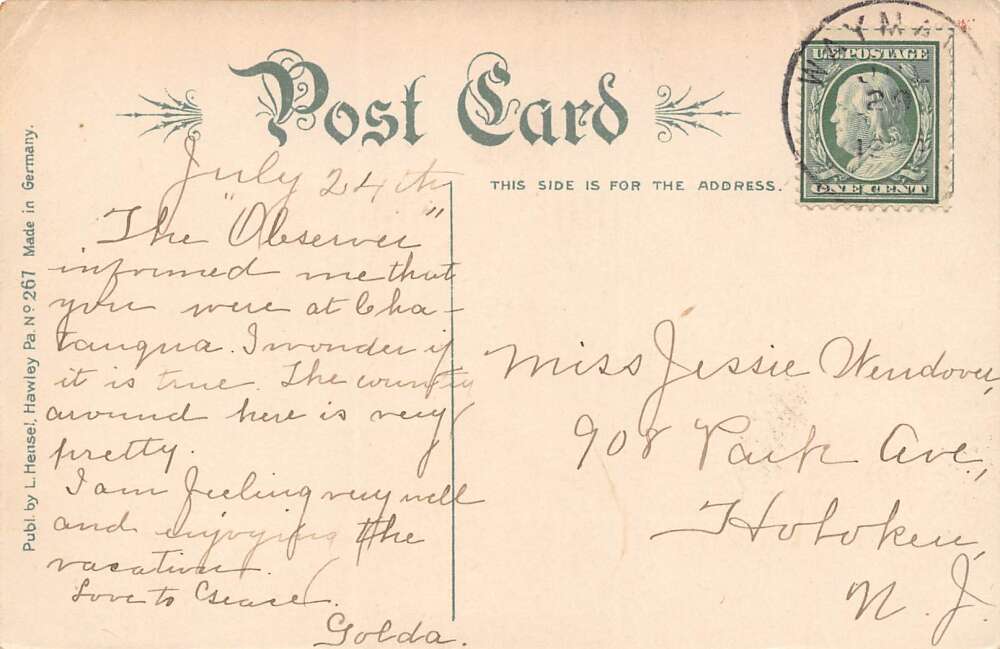 Post Card
THIS SIDE IS FOR THE ADDRESS.
WAYMA
U.S. POSTAGE
ONE CENT
Publ. by L. Hensel, Hawley Pa. No 267 Made in Germany.
July 24th
The "Observer"
informed me that
you were at Cha-
tauqua. I wonder if
it is true. The country
around here is very
pretty.
I am feeling very well
and enjoying the
vacation.
Love to
Golda.
Miss Jessie Wendover,
908 Park Ave.,
Hoboken,
N. J.